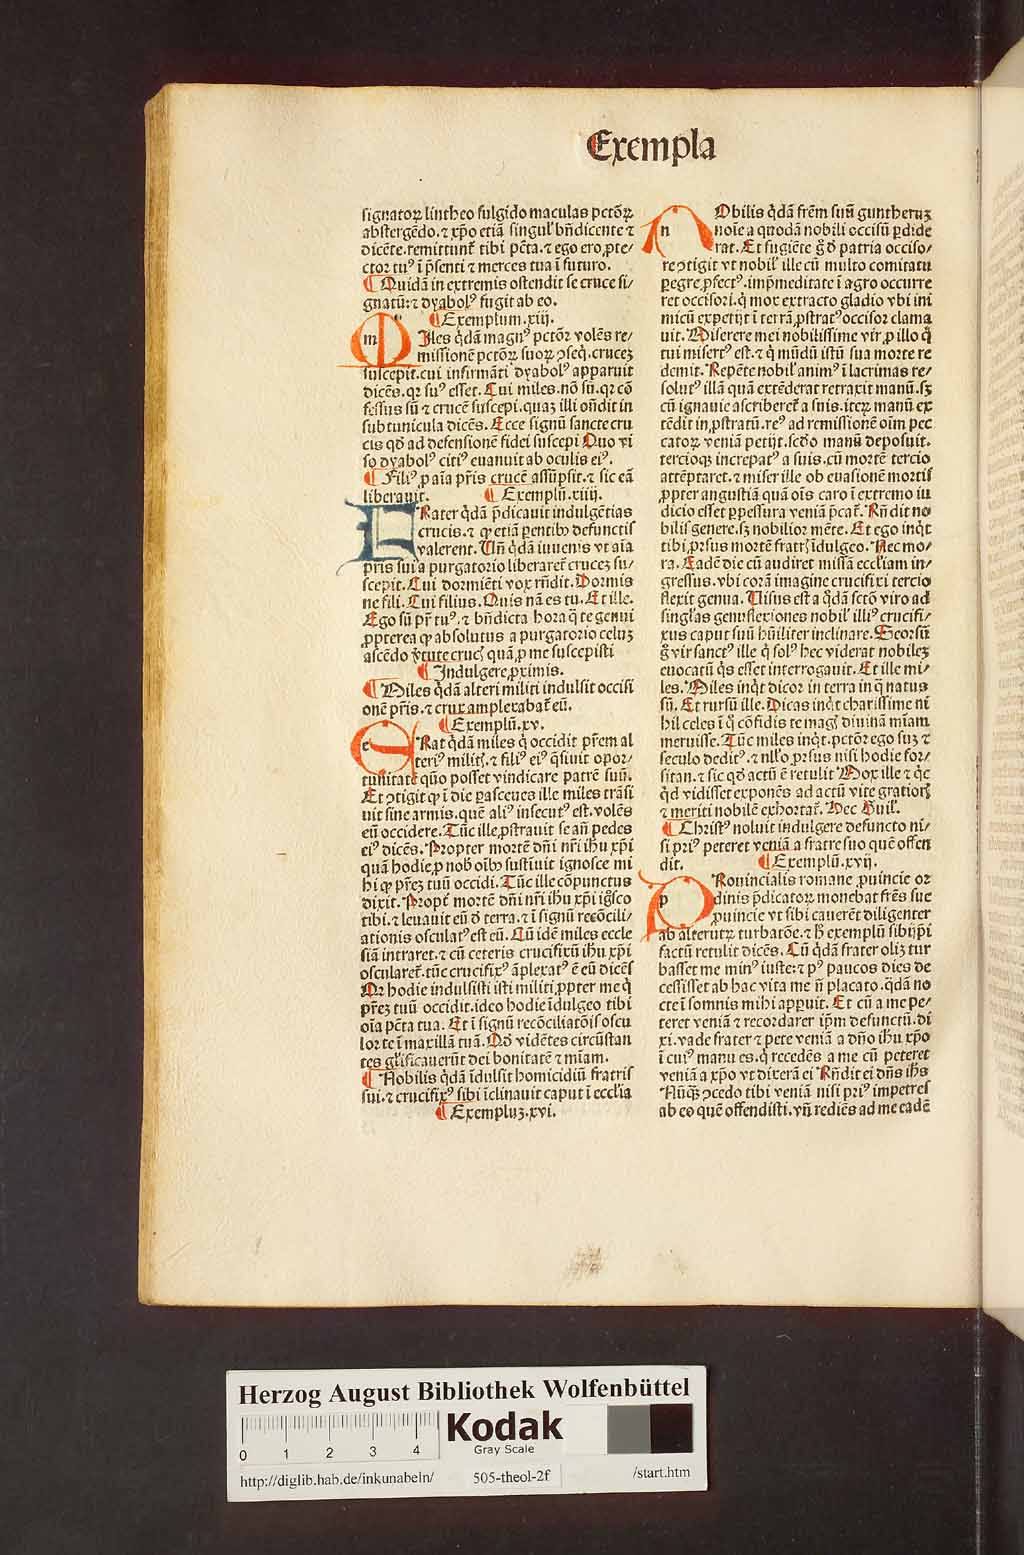 Exempla
signatoꝝ lintheo fulgido maculas pctõꝝ
abstergẽdo. ⁊ xp̃o etiã singul' bñdicente ⁊
dicẽte. remittunt᷑ tibi pctã. ⁊ ego ero ꝓte/
ctor tuꝰ ĩ p̃senti ⁊ merces tua ĩ futuro.
¶ Quidã in extremis ostendit se cruce si/
gnatũ: ⁊ dyabolꝰ fugit ab eo.
¶ Exemplum .xiij.
m Iles q̃dã magnꝰ pctõꝝ volẽs re/
missionẽ pctõꝝ suoꝝ ↄseq̃. crucez
suscepit. cui infirmãti dyabolꝰ apparuit
dicẽs. qꝛ suꝰ esset. Cui miles. nõ sũ. qꝛ cõ
fessus sũ ⁊ crucẽ suscepi. quaꝫ illi oñdit in
sub tunicula dicẽs. Ecce signũ sancte cru
cis qd̃ ad defensionẽ fidei suscepi Quo vi
so dyabolꝰ citiꝰ euanuit ab oculis eiꝰ.
¶ Filiꝰ ꝓ aĩa pr̃is crucẽ assũpsit. ⁊ sic eã
liberauit. ¶ Exemplũ .xiiij.
Rater q̃dã p̃dicauit indulgẽtias
crucis. ⁊ ꝙ etiã ꝑentibꝰ defunctis
valerent. Uñ q̃dã iuuenis vt aĩa
pris sui a purgatorio liberaret᷑ crucez su/
scepit. Cui dormiẽti vox rñdit. Dormis
ne fili. Cui filius. Quis nã es tu. Et ille.
Ego sũ pr̃ tuꝰ. ⁊ bñdicta hora q̃ te genui
ꝓpterea ꝙ absolutus a purgatorio celuꝫ
ascẽdo v̓tute crucꝭ quã ꝓ me suscepisti
¶ Indulgere ꝓximis.
¶ Miles q̃dã alteri militi indulsit occisi
onẽ pr̃is. ⁊ crux amplexabat᷑ eũ.
¶ Exemplũ .xv.
e Rat q̃dã miles q̃ occidit pr̃em al
teriꝰ militꝭ. ⁊ filiꝰ eiꝰ q̃siuit opor/
tunitatẽ quõ posset vindicare patrẽ suũ.
Et ↄtigit ꝙ ĩ die parasceues ille miles trãsi
uit sine armis. quẽ aliꝰ insecutꝰ est. volẽs
eũ occidere. Tũc ille ꝓstrauit se añ pedes
eiꝰ dicẽs. Propter mortẽ dñi nr̃i ihu xp̃i
quã hodie ꝓ nob̓ oĩbꝰ sustinuit ignosce mi
hi ꝙ pr̃eꝫ tuũ occidi. Tũc ille cõpunctus
dixit. Propt᷑ mortẽ dñi nr̃i ihu xp̃i igsco
tibi. ⁊ leuauit eũ d̓ terra. ⁊ ĩ signũ recõcili/
ationis osculatꝰ est eũ. Cũ idẽ miles eccle
siã intraret. ⁊ cũ ceteris crucifixũ ihu xp̃i
oscularet᷑. tũc crucifixꝰ ãplexatꝰ ẽ eũ dicẽs
Qꝛ hodie indulsisti isti militi ꝓpter me q̃
pr̃eꝫ tuũ occidit. ideo hodie ĩdulgeo tibi
oĩa pctã tua. Et ĩ signũ recõciliatõis oscu
lor te ĩ maxillã tuã. Qd̃ vidẽtes circũstan
tes gl'ificauerũt dei bonitatẽ ⁊ mĩam.
¶ Nobilis q̃dã ĩdulsit homicidiũ fratris
sui. ⁊ crucifixꝰ sibi ĩclinauit caput ĩ eccl'ia
¶ Exempluꝫ .xvi.
n Obilis q̃dã fr̃em suũ guntheruꝫ
noĩe a quodã nobili occisũ ꝑdide
rat. Et fugiẽte g̊ d̓ patria occiso/
re ↄtigit vt nobil' ille cũ multo comitatu
ꝑegre ꝓfectꝰ. imp̃meditate ĩ agro occurre
ret occisori. q̃ mox extracto gladio vbi ini
micũ expetijt ĩ terrã ꝓstratꝰ occisor clama
uit. Miserere mei nobilissime vir ꝓ illo q̃
tui misertꝰ est. ⁊ q̃ mũdũ istũ sua morte re
demit. Repẽte nobil' animꝰ ĩ lacrimas re/
solutꝰ illã quã extẽderat retraxit manũ. sꝫ
cũ ignauie ascriberet᷑ a suis. iteꝝ manũ ex
tẽdit in ꝓstratũ. reꝰ ad remissionẽ oĩm pec
catoꝝ veniã petijt. scd̃o manũ deposuit.
tercioqꝫ increpatꝰ a suis. cũ mortẽ tercio
attẽptaret. ⁊ miser ille ob euasionẽ mortis
ꝓpter angustiã quã oĩs caro ĩ extremo iu
dicio esset ꝑpessura veniã p̃cat᷑. Rñdit no
bilis genere. sꝫ nobilior mẽte. Et ego inq̃t
tibi ꝓrsus mortẽ fratrꝭ ĩdulgeo. Nec mo/
ra. Eadẽ die cũ audiret missã eccl'iam in/
gressus. vbi corã imagine crucifixi tercio
flexit genua. Uisus est a q̃dã sctõ viro ad
singl'as genuflexiones nobil' illiꝰ crucifi/
xus caput suũ hũiliter inclinare. Seorsũ
g̊ vir sanctꝰ ille q̃ solꝰ hec viderat nobileꝫ
euocatũ q̃s esset interrogauit. Et ille mi/
les. Miles inq̃t dicor in terra in q̃ natus
sũ. Et rursũ ille. Dicas inq̃t charissime ni
hil celes ĩ q̃ cõfidis te magꝭ diuinã mĩam
meruisse. Tũc miles inq̃t. pctõr ego suꝫ ⁊
seculo deditꝰ. ⁊ nll'o ꝓrsus nisi hodie for/
sitan. ⁊ sic qd̃ actũ ẽ retulit Mox ille ⁊ q̃c
q̃d vidisset exponẽs ad actũ vite gratiorꝭ
⁊ meriti nobilẽ exhortat᷑. Hec Guil'.
¶ Christꝰ noluit indulgere defuncto ni/
si priꝰ peteret veniã a fratre suo quẽ offen
dit. ¶ Exemplũ .xvij.
p Rouincialis romane ꝓuincie or
dinis p̃dicatoꝝ monebat fr̃es sue
ꝓuincie vt sibi cauerẽt diligenter
ab alterutꝝ turbatõe. ⁊ h̓ exemplũ sibijpi
factũ retulit dicẽs. Cũ q̃dã frater oliꝫ tur
basset me minꝰ iuste: ⁊ pꝰ paucos dies de
cessisset ab hac vita me ñ placato. q̃dã no
cte ĩ somnis mihi apꝑuit. Et cũ a me pe/
teret veniã ⁊ recordarer ip̃m defunctũ. di
xi. vade frater ⁊ pete veniã a dño ihu xp̃o
ĩ cuiꝰ manu es. q̃ recedẽs a me cũ peteret
veniã a xp̃o vt dixerã ei Rñdit ei dñs ihs
Nũq̃ꝫ ↄcedo tibi veniã nisi priꝰ impetres
ab eo quẽ offendisti. vñ rediẽs ad me eadẽ
Herzog August Bibliothek Wolfenbüttel
Kodak
Gray Scale
0 1 2 3 4
http://diglib.hab.de/inkunabeln/ 505-theol-2f /start.htm